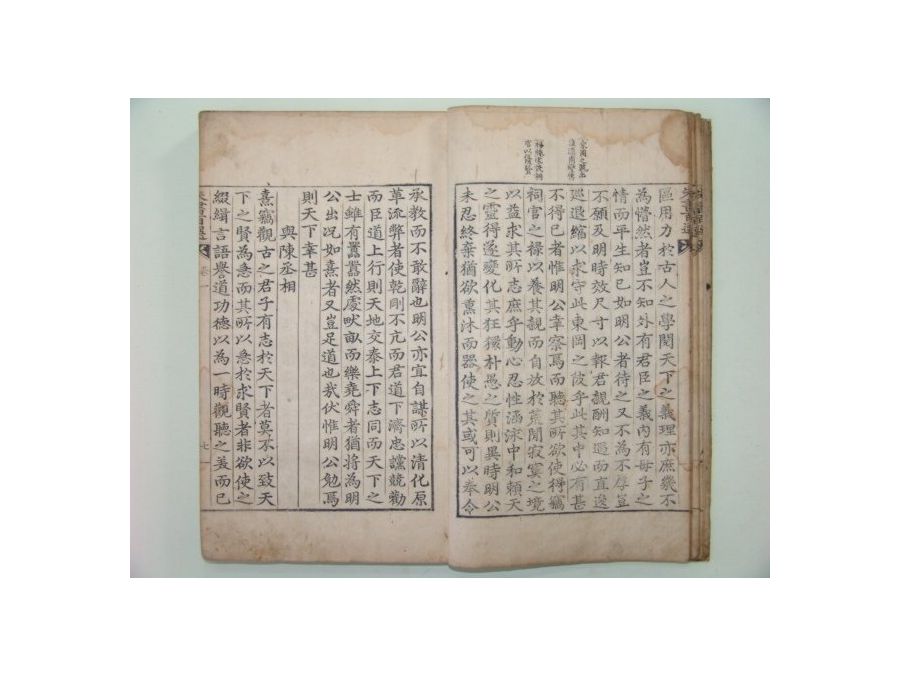 區用力於古人之學閱天下之義理亦庶幾不
為懵然者豈不知外有君臣之義內有母子之
情而平生知已如明公者待之又不為不厚豈
不願及明時效尺寸以報君親酬知遇而直逡
巡退縮以求守此東岡之陂乎此其中必有甚
不得已者惟明公幸察焉而聽其所欲使得竊
祠官之祿以養其親而自放於荒閒寂寞之境
以益求其所志庶乎動心忍性涵泳中和賴天
之靈得遂變化其狂獧朴愚之質則異時明公
未忍終棄猶欲熏沐而器使之其或可以奉令
承教而不敢辭也明公亦宜自謀所以清化原
革流弊者使乾剛不亢而君道下濟忠讜競勸
而臣道上行則天地交泰上下志同而天下之
士雖有囂囂然處畎畝而樂堯舜者猶將為明
公出况如熹者又豈足道也哉伏惟明公勉焉
則天下幸甚
與陳丞相
熹竊觀古之君子有志於天下者莫不以致天
下之賢為急而其所以急於求賢者非欲使之
綴緝言語譽道功德以為一時觀聽之美而已
朱書百選 卷一 七